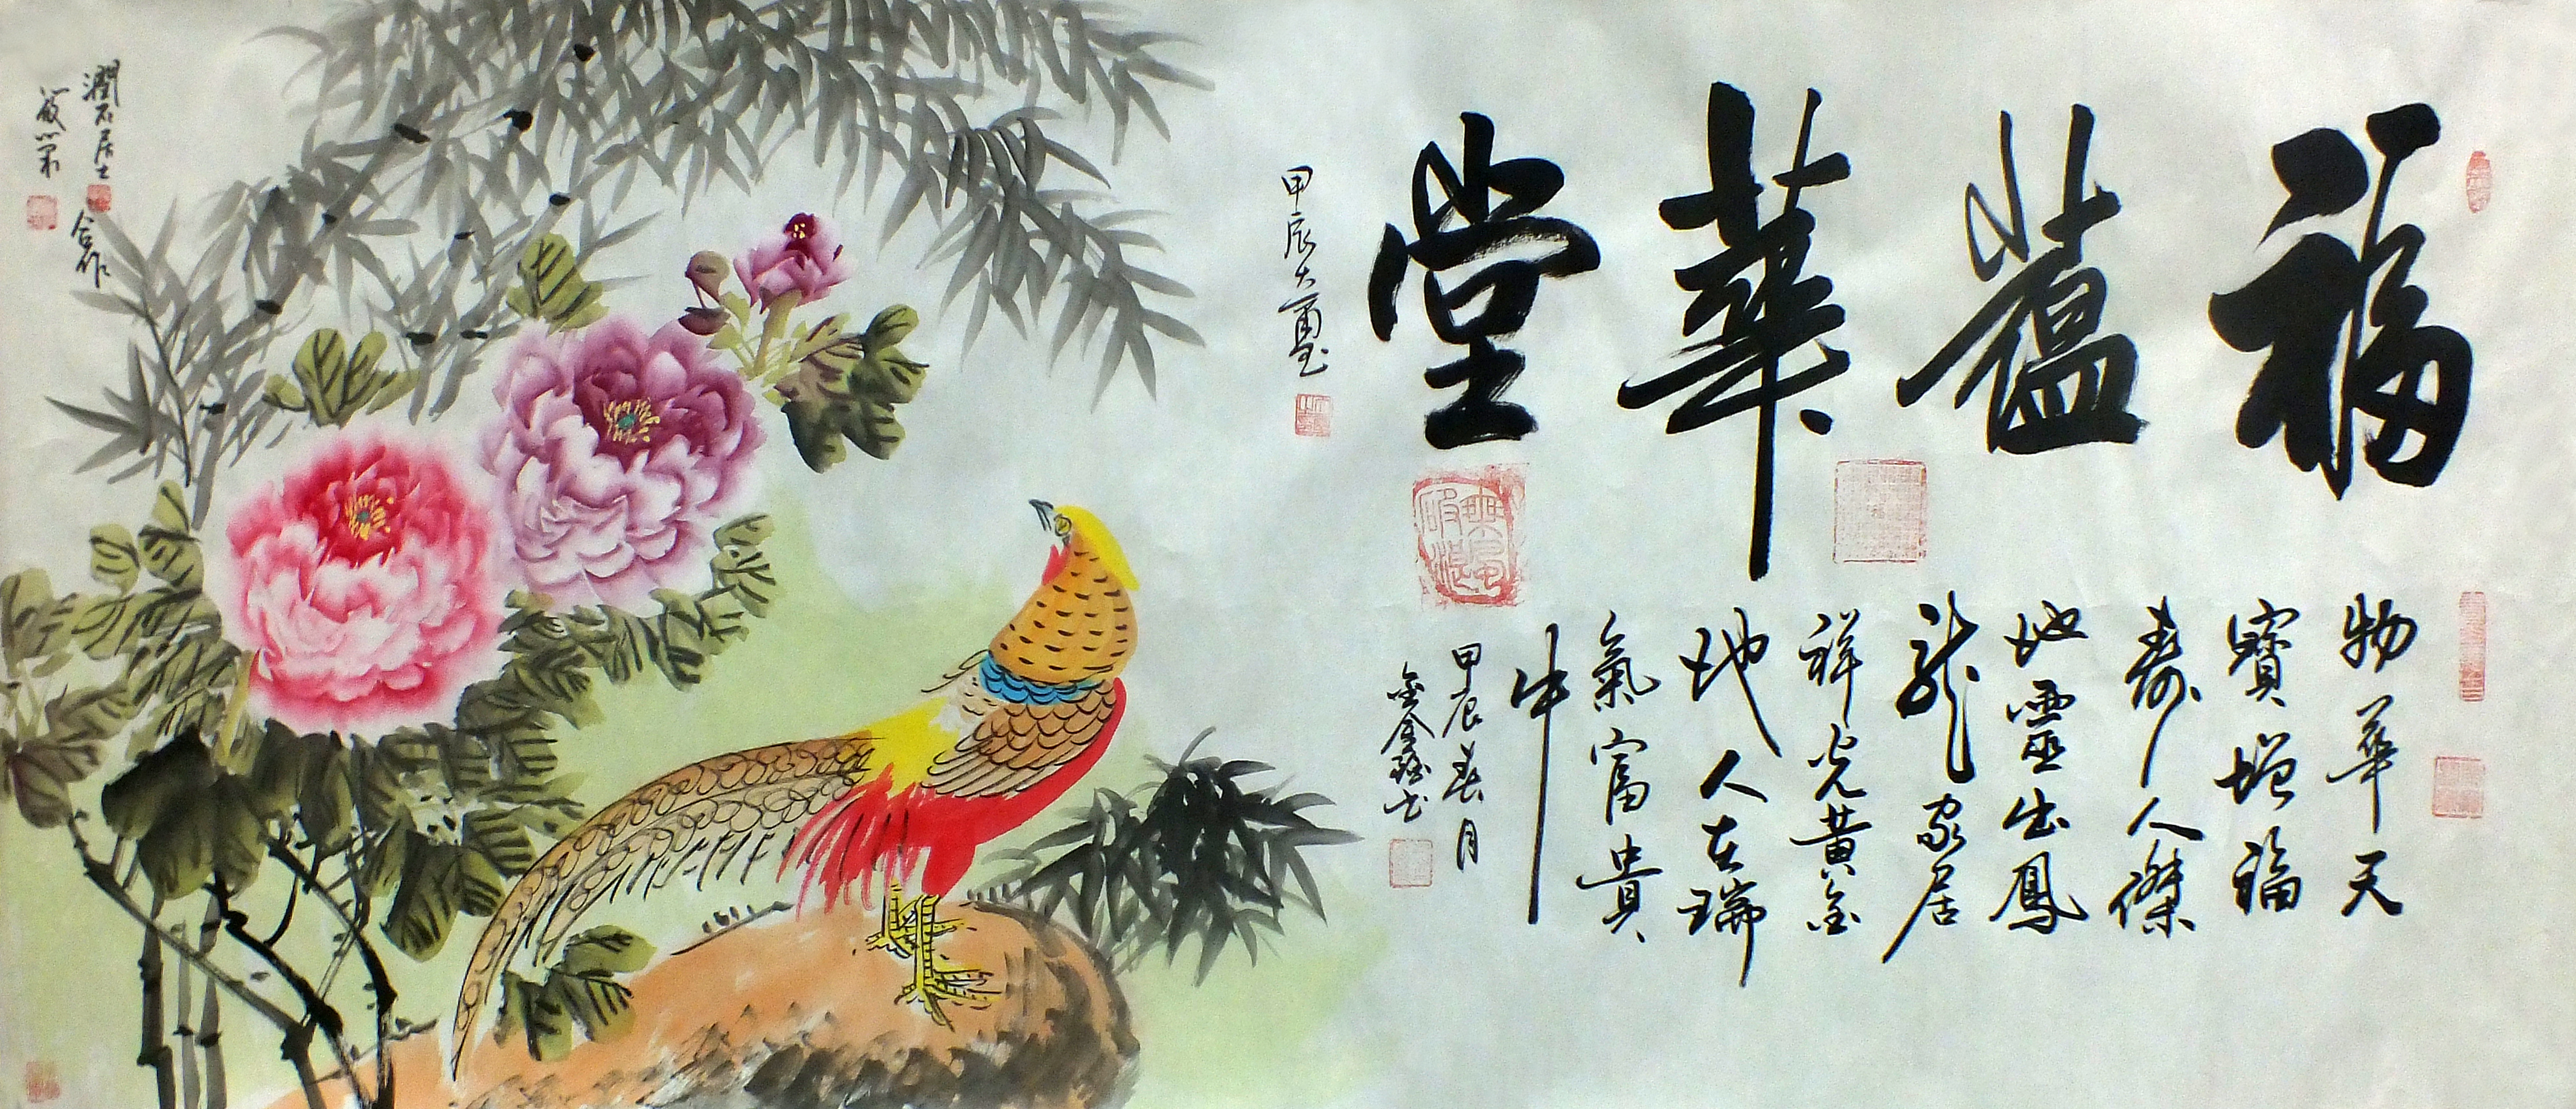 福蘊華堂
甲辰大
物華天
寶增福
壽人傑
地靈出鳳
龍家居
祥光黄金
地人在瑞
氣富貴
中
甲辰春月
潤石居士
合作